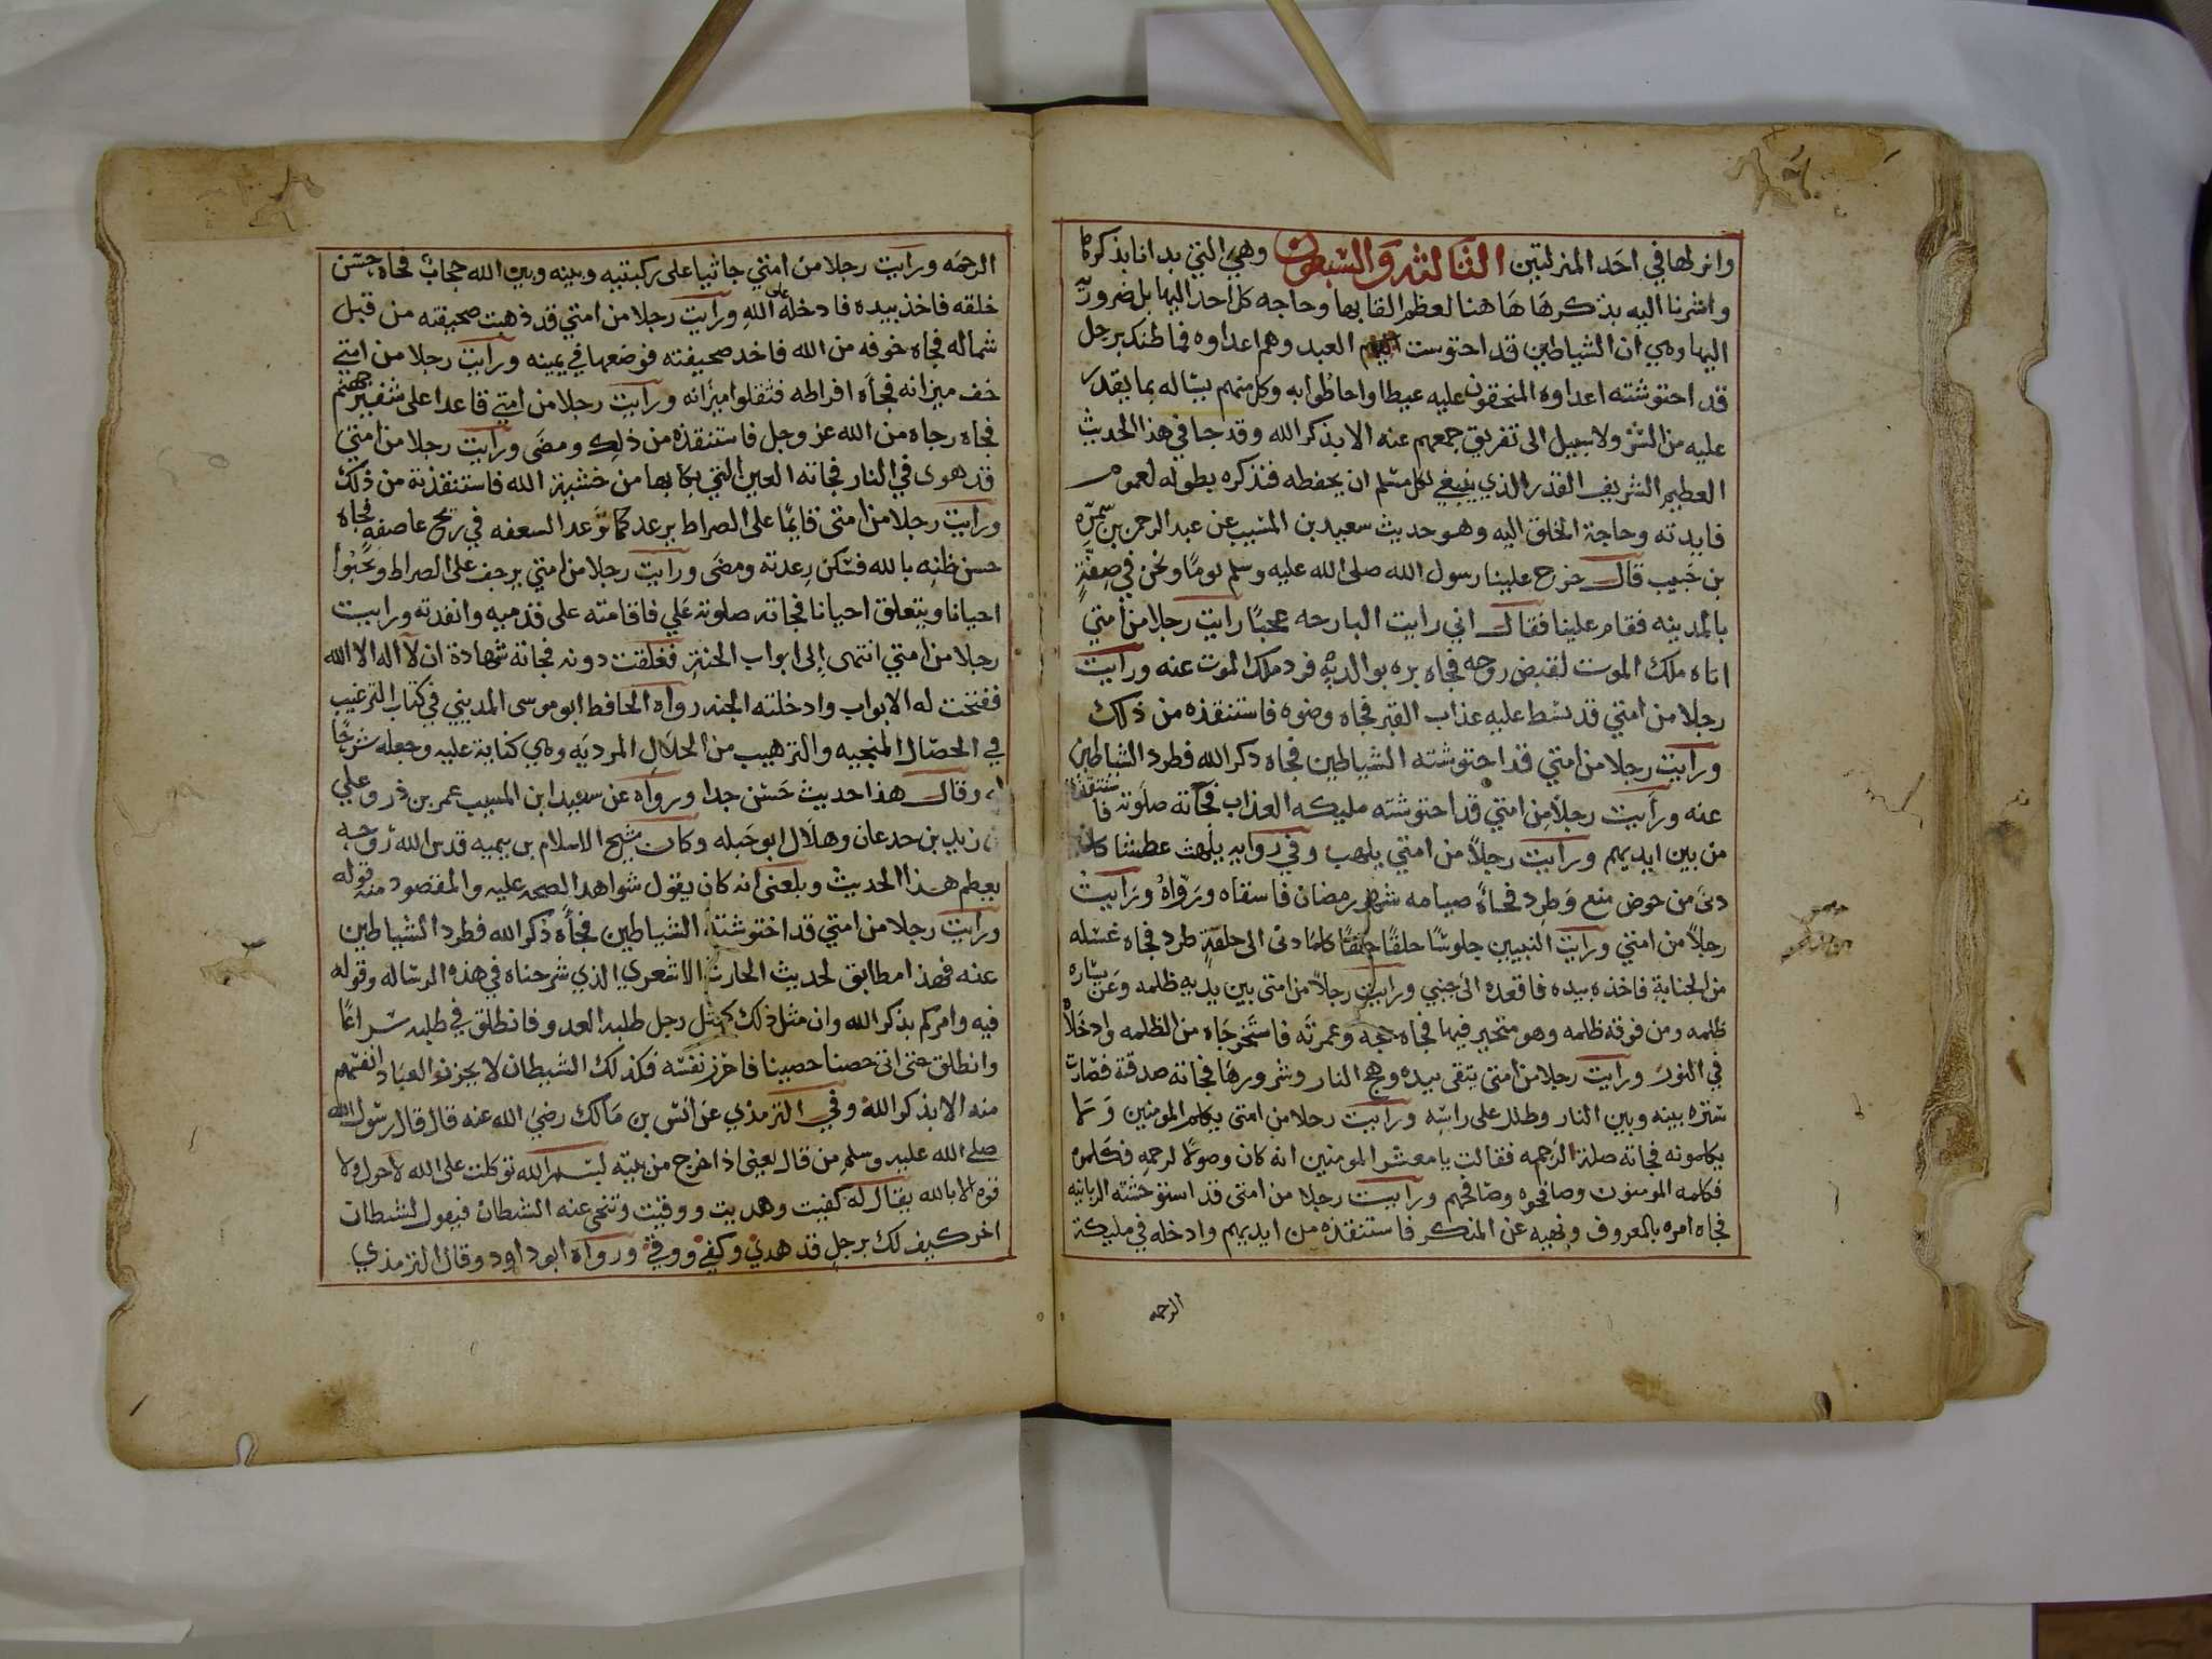 وانزلها في احد المنزلتين الثالثه والسبعون وهي التي بدانا بذكرها
واشرنا اليه بذكرها هاهنا لعظم القابها وحاجه كل احد اليها بل ضرورته
اليها وهي ان الشياطين قد احتوشت العبد وهم اعداوه فما ظنك برجل
قد احتوشته اعداوه المنحقون عليه غيظا واحاطوا به وكل منهم يناله بما يقدر
عليه من الشر ولا سبيل الى تفريق جمعهم عنه الا بذكر الله وقد جا في هذا الحديث
العظيم الشريف القدر الذي ينبغي لكل مسلم ان يحفظه فنذكره بطوله لعموم
فايدته وحاجة الخلق اليه وهو حديث سعيد بن المسيب عن عبد الرحمن بن سمره
بن حبيب قال خرج علينا رسول الله صلى الله عليه وسلم يوما ونحن في صفة
بالمدينه فقام علينا فقال اني رايت البارحه عجبا رايت رجلا من امتي
اتاه ملك الموت لقبض روحه فجاه بره بوالديه فرد ملك الموت عنه ورايت
رجلا من امتي قد بسط عليه عذاب القبر فجاه وضوه فاستنقذه من ذلك
ورايت رجلا من امتي قد احتوشته الشياطين فجاه ذكر الله فطرد الشياطين
عنه ورايت رجلا من امتي قد احتوشته مليكه العذاب فجاته صلوته فاستنقذته
من بين ايديهم ورايت رجلا من امتي يلهب وفي روايه يلهث عطشا كلما
دنى من حوض منع وطرد فجاه صيامه شهر رمضان فاسقاه ورواه ورايت
رجلا من امتي ورايت النبيين جلوسا حلقا حلقا كلما دنى الى حلقة طرد فجاه غسله
من الجنابة فاخذه بيده فاقعده الى جنبي ورايت رجلا من امتي بين يديه ظلمه وعن يساره
ظلمه ومن فوقه ظلمه وهو متحير فيها فجاه حجه وعمرته فاستخرجاه من الظلمه وادخلاه
في النور ورايت رجلا من امتي يتقي بيده وهج النار وشررها فجاته صدقته فصارت
ستره بينه وبين النار وظلل على راسه ورايت رجلا من امتي يكلم المومنين ولا
يكلمونه فجاته صلة الرحمه فقالت يا معشر المومنين انه كان وصولا لرحمه فكلموه
فكلمه المومنون وصافحوه وصافحهم ورايت رجلا من امتي قد استوحشته الزبانيه
فجاه امره بالمعروف ونهيه عن المنكر فاستنقذه من ايديهم وادخله في مليكة
الرحمه
الرحمه ورايت رجلا من امتي جاثيا على ركبتيه وبينه وبين الله حجاب فجاه حسن
خلقه فاخذ بيده فادخله على الله ورايت رجلا من امتي قد ذهبت صحيفته من قبل
شماله فجاه خوفه من الله فاخذ صحيفته فوضعها في يمينه ورايت رجلا من امتي
خف ميزانه فجاه افراطه فثقلوا ميزانه ورايت رجلا من امتي قاعدا على شفير جهنم
فجاه رجاه من الله عز وجل فاستنقذه من ذلك ومضى ورايت رجلا من امتي
قد هوى في النار فجاته العين التي بكا بها من خشية الله فاستنقذته من ذلك
ورايت رجلا من امتي قايما على الصراط يرعد كما توعد السعفه في ريح عاصفه فجاه
حسن ظنه بالله فسكن رعدته ومضى ورايت رجلا من امتي يزحف على الصراط ويحبوا
احيانا ويتعلق احيانا فجاته صلوته علي فاقامته على قدميه وانقذته ورايت
رجلا من امتي انتهى الى ابواب الجنة فغلقت دونه فجاته شهادة ان لا اله الا الله
ففتحت له الابواب وادخلته الجنه رواه الحافظ ابو موسى المديني في كتاب الترغيب
في الخصال المنجيه والترهيب من الخلال المرديه وهي كتابة عليه وجعله شرحا
له وقال هذا حديث حسن جدا ورواه عن سعيد ابن المسيب عمر بن ذر وعلي
بن زيد بن جدعان وهلال ابو جبله وكان شيخ الاسلام بن تيميه قدس الله روحه
يعظم هذا الحديث وبلغنى انه كان يقول شواهد الصحه عليه والمقصود منه قوله
ورايت رجلا من امتي قد احتوشته الشياطين فجاه ذكر الله فطرد الشياطين
عنه فهذا مطابق لحديث الحارث الاشعري الذي شرحناه في هذه الرساله وقوله
فيه وامركم بذكر الله وان مثل ذلك كمثل رجل طلبه العدو فانطلق في طلبه سراعا
وانطلق حتى اتى حصنا حصينا فاحرز نفسه فكذلك الشيطان لا يحرزوا العباد انفسهم
منه الا بذكر الله وفي الترمذي عن انس بن مالك رضي الله عنه قال قال رسول الله
صلى الله عليه وسلم من قال يعني اذا خرج من بيته بسم الله توكلت على الله لا حول ولا
قوه الا بالله يقال له كفيت وهديت ووقيت وتنحى عنه الشيطان فيقول لشيطان
اخر كيف لك برجل قد هدي وكفي ووقي ورواه ابو داود وقال الترمذي